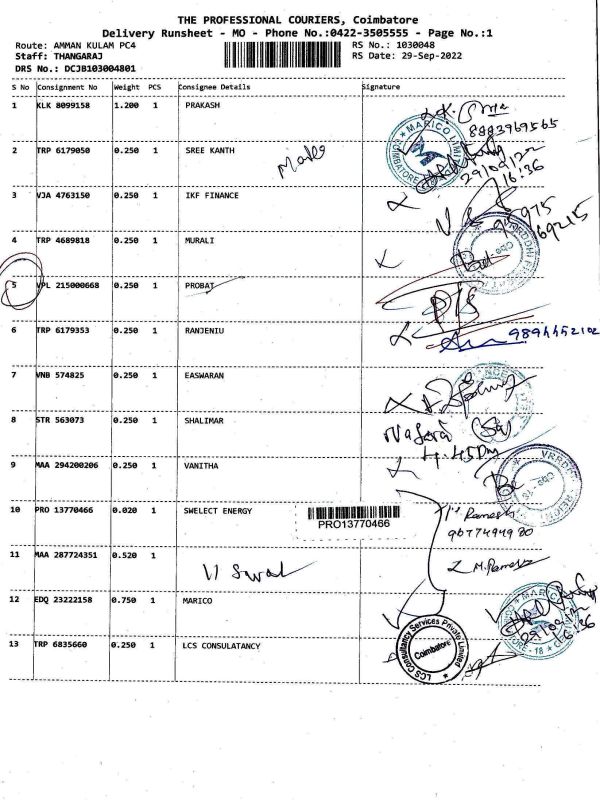 THE PROFESSIONAL COURIERS, Coimbatore
Delivery Runsheet - MO - Phone No.:0422-3505555 - Page No.:1
Route: AMMAN KULAM PC4
RS No.: 1030048
Staff: THANGARAJ
RS Date: 29-Sep-2022
DRS No.: DCJB103004801
S No Consignment No Weight PCS Consignee Details Signature
1 KLK 8099158 1.200 1 PRAKASH
8883969565
MARICO LIMITED
COIMBATORE
2 TRP 6179050 0.250 1 SREE KANTH
29/09/22
16:36
3 VJA 4763150 0.250 1 IKF FINANCE
4 TRP 4689818 0.250 1 MURALI
5 VPL 215000668 0.250 1 PROBAT
6 TRP 6179353 0.250 1 RANJENIU
9894452102
7 VNB 574825 0.250 1 EASWARAN
8 STR 563073 0.250 1 SHALIMAR
4.45 Pm
9 MAA 294200206 0.250 1 VANITHA
10 PRO 13770466 0.020 1 SWELECT ENERGY
PRO13770466
Ramesh
9677494980
11 MAA 287724351 0.520 1
12 EDQ 23222158 0.750 1 MARICO
29/09/22
16:36
13 TRP 6835660 0.250 1 LCS CONSULATANCY
LCS Consultancy Services Private Limited
Coimbatore